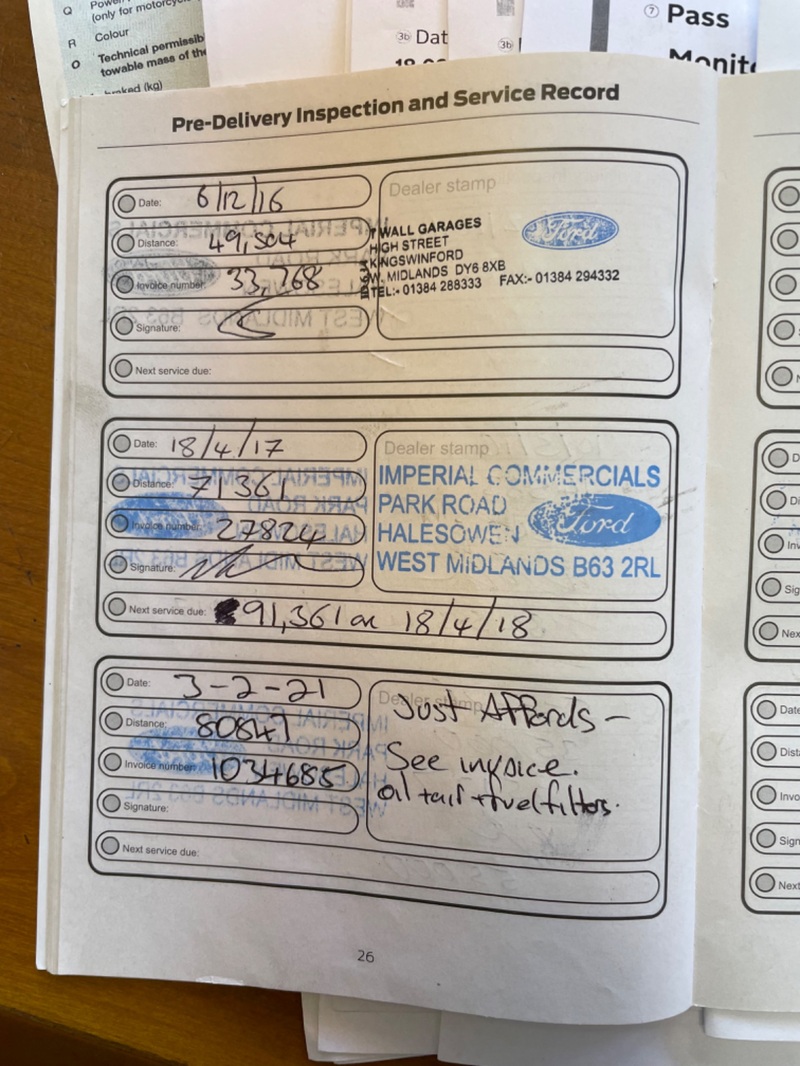 Q
(only for motorcycl
R Colour
O Technical permissib
towable mass of the
(kg)
3b Dat
3b
7 Pass
Monito
Pre-Delivery Inspection and Service Record
Date: 6/12/16
Distance: 49,504
Invoice number: 33,768
Signature:
Next service due:
Dealer stamp
WALL GARAGES
HIGH STREET
KINGSWINFORD
W. MIDLANDS DY6 8XB
TEL:- 01384 288333 FAX:- 01384 294332
Ford
Date: 18/4/17
Distance: 71361
Invoice number: 27824
Signature:
Next service due: 91,361 or 18/4/18
Dealer stamp
IMPERIAL COMMERCIALS
PARK ROAD
HALESOWEN
WEST MIDLANDS B63 2RL
Ford
Date: 3-2-21
Distance: 80841
Invoice number: 1034685
Signature:
Next service due:
Dealer stamp
Just Affords -
See invoice.
oil + air + fuel filters.
26
D
Di
Inv
Sig
Nex
Date
Dist
Invo
Sign
Next